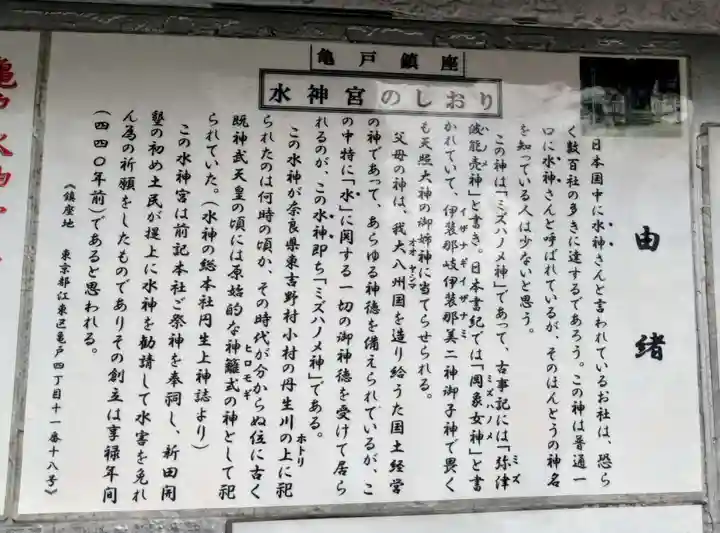 亀戸鎮座
水神宮のしおり
由緒
日本国中に水神さんと言われているお社は、恐ら
く数百社の多きに達するであろう。この神は普通一
口に水神さんと呼ばれているが、そのほんとうの神名
を知っている人は少ないと思う。
この神は「ミズハノメ神」であって、古事記には「弥津
波能売神」と書き。日本書紀では「罔象女神」と書
かれていて、伊弉那岐伊弉那美二神御子神で畏く
も天照大神の御姉神に当てらせられる。
父母の神は、我大八州国を造り給うた国土経学
の神であって、あらゆる神徳を備えられているが、こ
の中特に「水」に関する一切の御神徳を受けて居ら
れるのが、この水神即ち「ミズハノメ神」である。
この水神が奈良県東吉野村小村の丹生川の上に祀
られたのは何時の頃か、その時代が分からぬ位に古く
既神武天皇の頃には原始的な神籬式の神として祀
られていた。(水神の総本社丹生上神誌より)
この水神宮は前記本社ご祭神を奉祠し、新田開
墾の初め土民が堤上に水神を勧請して水害を免れ
ん為の祈願をしたものでありその創立は享禄年間
(四四〇年前)であると思われる。
《鎮座地 東京都江東区亀戸四丁目十一番十八号》